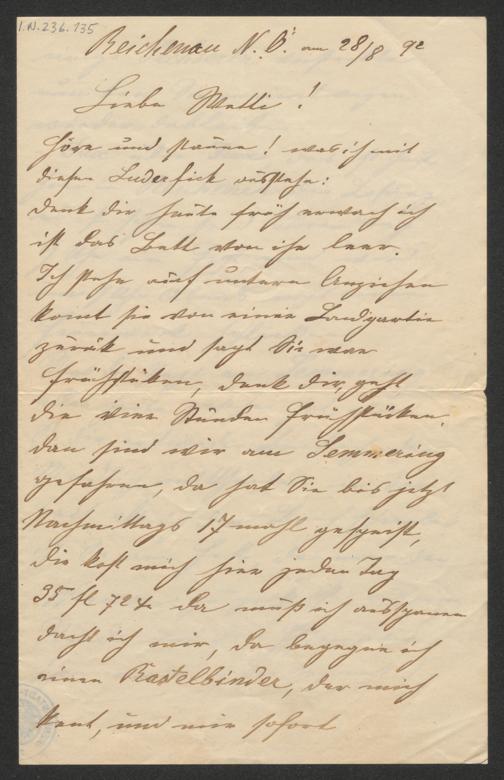 I.N. 236.135
Reichenau N. Ö. am 28/8 92
Liebe Wetti!
Höre und staune! was ich mit
diesen Luderfick ausstehe:
denk dir heute früh erwach ich
ist das Bett von ihr leer.
Ich stehe auf untern Anziehen
komt sie von einer Landpartie
zurük und sagt Sie war
frühstüken, denk dir, geht
die vier Stunden frühstücken.
dan sind wir am Semmering
gefahren, da hat Sie bis jetzt
Nachmittags 17 mahl gespeist,
die kost mich hier jeden Tag
35 fl 72 x da muß ich ausspanen
dacht ich mir, da begegne ich
einen Rastelbinder, der mich
kent, und mir sofort